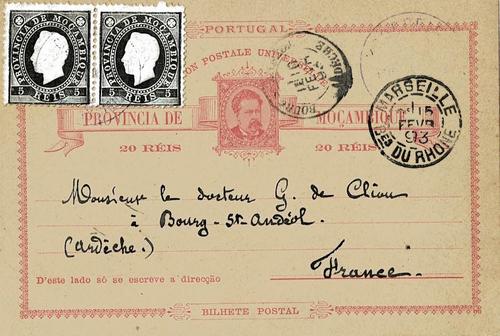 PROVINCIA DE MOÇAMBIQUE
5 REIS 5
PROVINCIA DE MOÇAMBIQUE
5 REIS 5
PORTUGAL
UNION POSTALE UNIVERSELLE
PROVINCIA DE MOÇAMBIQUE
20 RÉIS 20 RÉIS
MARSEILLE
15
FEVR
93
BES DU RHONE
Monsieur le docteur G. de Cliou
à Bourg-St-Andéol.
(Ardèche.)
France.
D'este lado só se escreve a direcção
BILHETE POSTAL